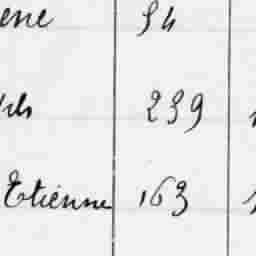 ene 54
fils 239
Etienne 163